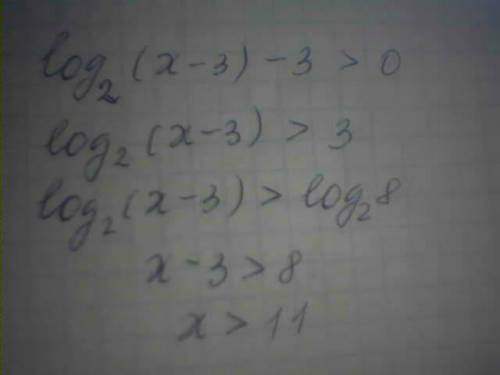 log₂(x-3)-3>0
log₂(x-3)>3
log₂(x-3)>log₂8
x-3>8
x>11